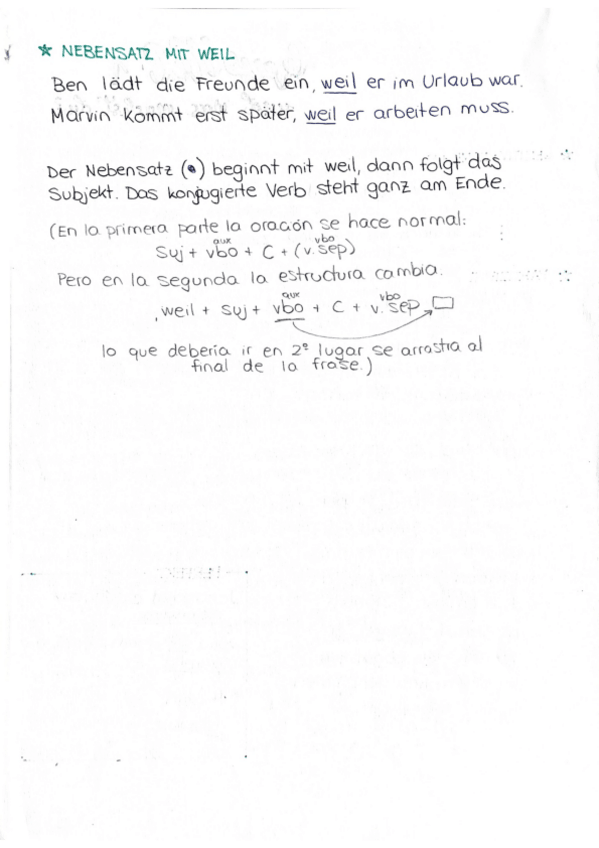 * NEBENSATZ MIT WEIL
Ben lädt die Freunde ein, weil er im Urlaub war.
Marvin kommt erst später, weil er arbeiten muss.
Der Nebensatz (•) beginnt mit weil, dann folgt das
Subjekt. Das konjugierte Verb steht ganz am Ende.
(En la primera parte la oración se hace normal:
aux vbo
Suj + vbo + C + (v. sep)
Pero en la segunda la estructura cambia.
aux vbo
, weil + suj + vbo + C + v. sep
lo que debería ir en 2º lugar se arrastra al
final de la frase.)